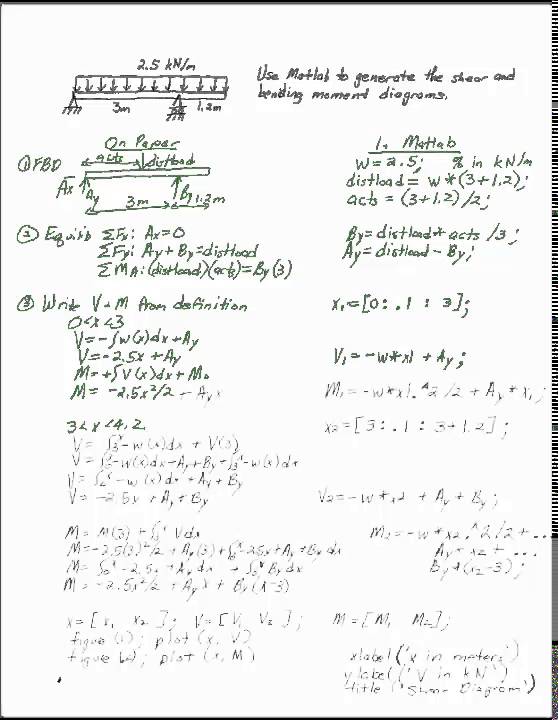 2.5 kN/m
Use Matlab to generate the shear and
bending moment diagrams.
3m
1.2m
On Paper
In Matlab
① FBD
acts
distload
w = 2.5; % in kN/m
distload = w*(3+1.2);
acts = (3+1.2)/2;
Ax
Ay
By
3m
1.2m
② Equilib ΣFx: Ax=0
ΣFy: Ay + By = distload
ΣMA: (distload)(acts) = By(3)
By = distload * acts /3;
Ay = distload - By;
③ Write V + M from definition
0<x<3
x1=[0: .1 : 3];
V = -∫w(x)dx + Ay
V = -2.5x + Ay
V1 = -w*x1 + Ay;
M = +∫V(x)dx + Mo
M = -2.5x²/2 - Ayx
M1 = -w*x1.^2/2 + Ay*x1;
3<x<4.2
x2=[3:.1:3+1.2];
V = ∫3^x -w(x)dx + V(3)
V = ∫0^3 -w(x)dx + Ay + By + ∫3^x -w(x)dx
V = ∫0^x -w(x)dx + Ay + By
V = -2.5x + Ay + By
V2 = -w*x2 + Ay + By;
M = M(3) + ∫3^x Vdx
M = -2.5(3)²/2 + Ay(3) + ∫3^x -2.5x + Ay + By dx
M = ∫0^x -2.5x + Ay dx + ∫3^x By dx
M = -2.5x²/2 + Ayx + By(x-3)
M2 = -w*x2.^2/2 + ...
Ay*x2 + ...
By*(x2-3);
x = [x1 x2]; V = [V1 V2]; M = [M1 M2];
figure(1); plot(x, V)
figure(2); plot(x, M)
xlabel('x in meters')
ylabel('V in kN')
title('Shear Diagram')